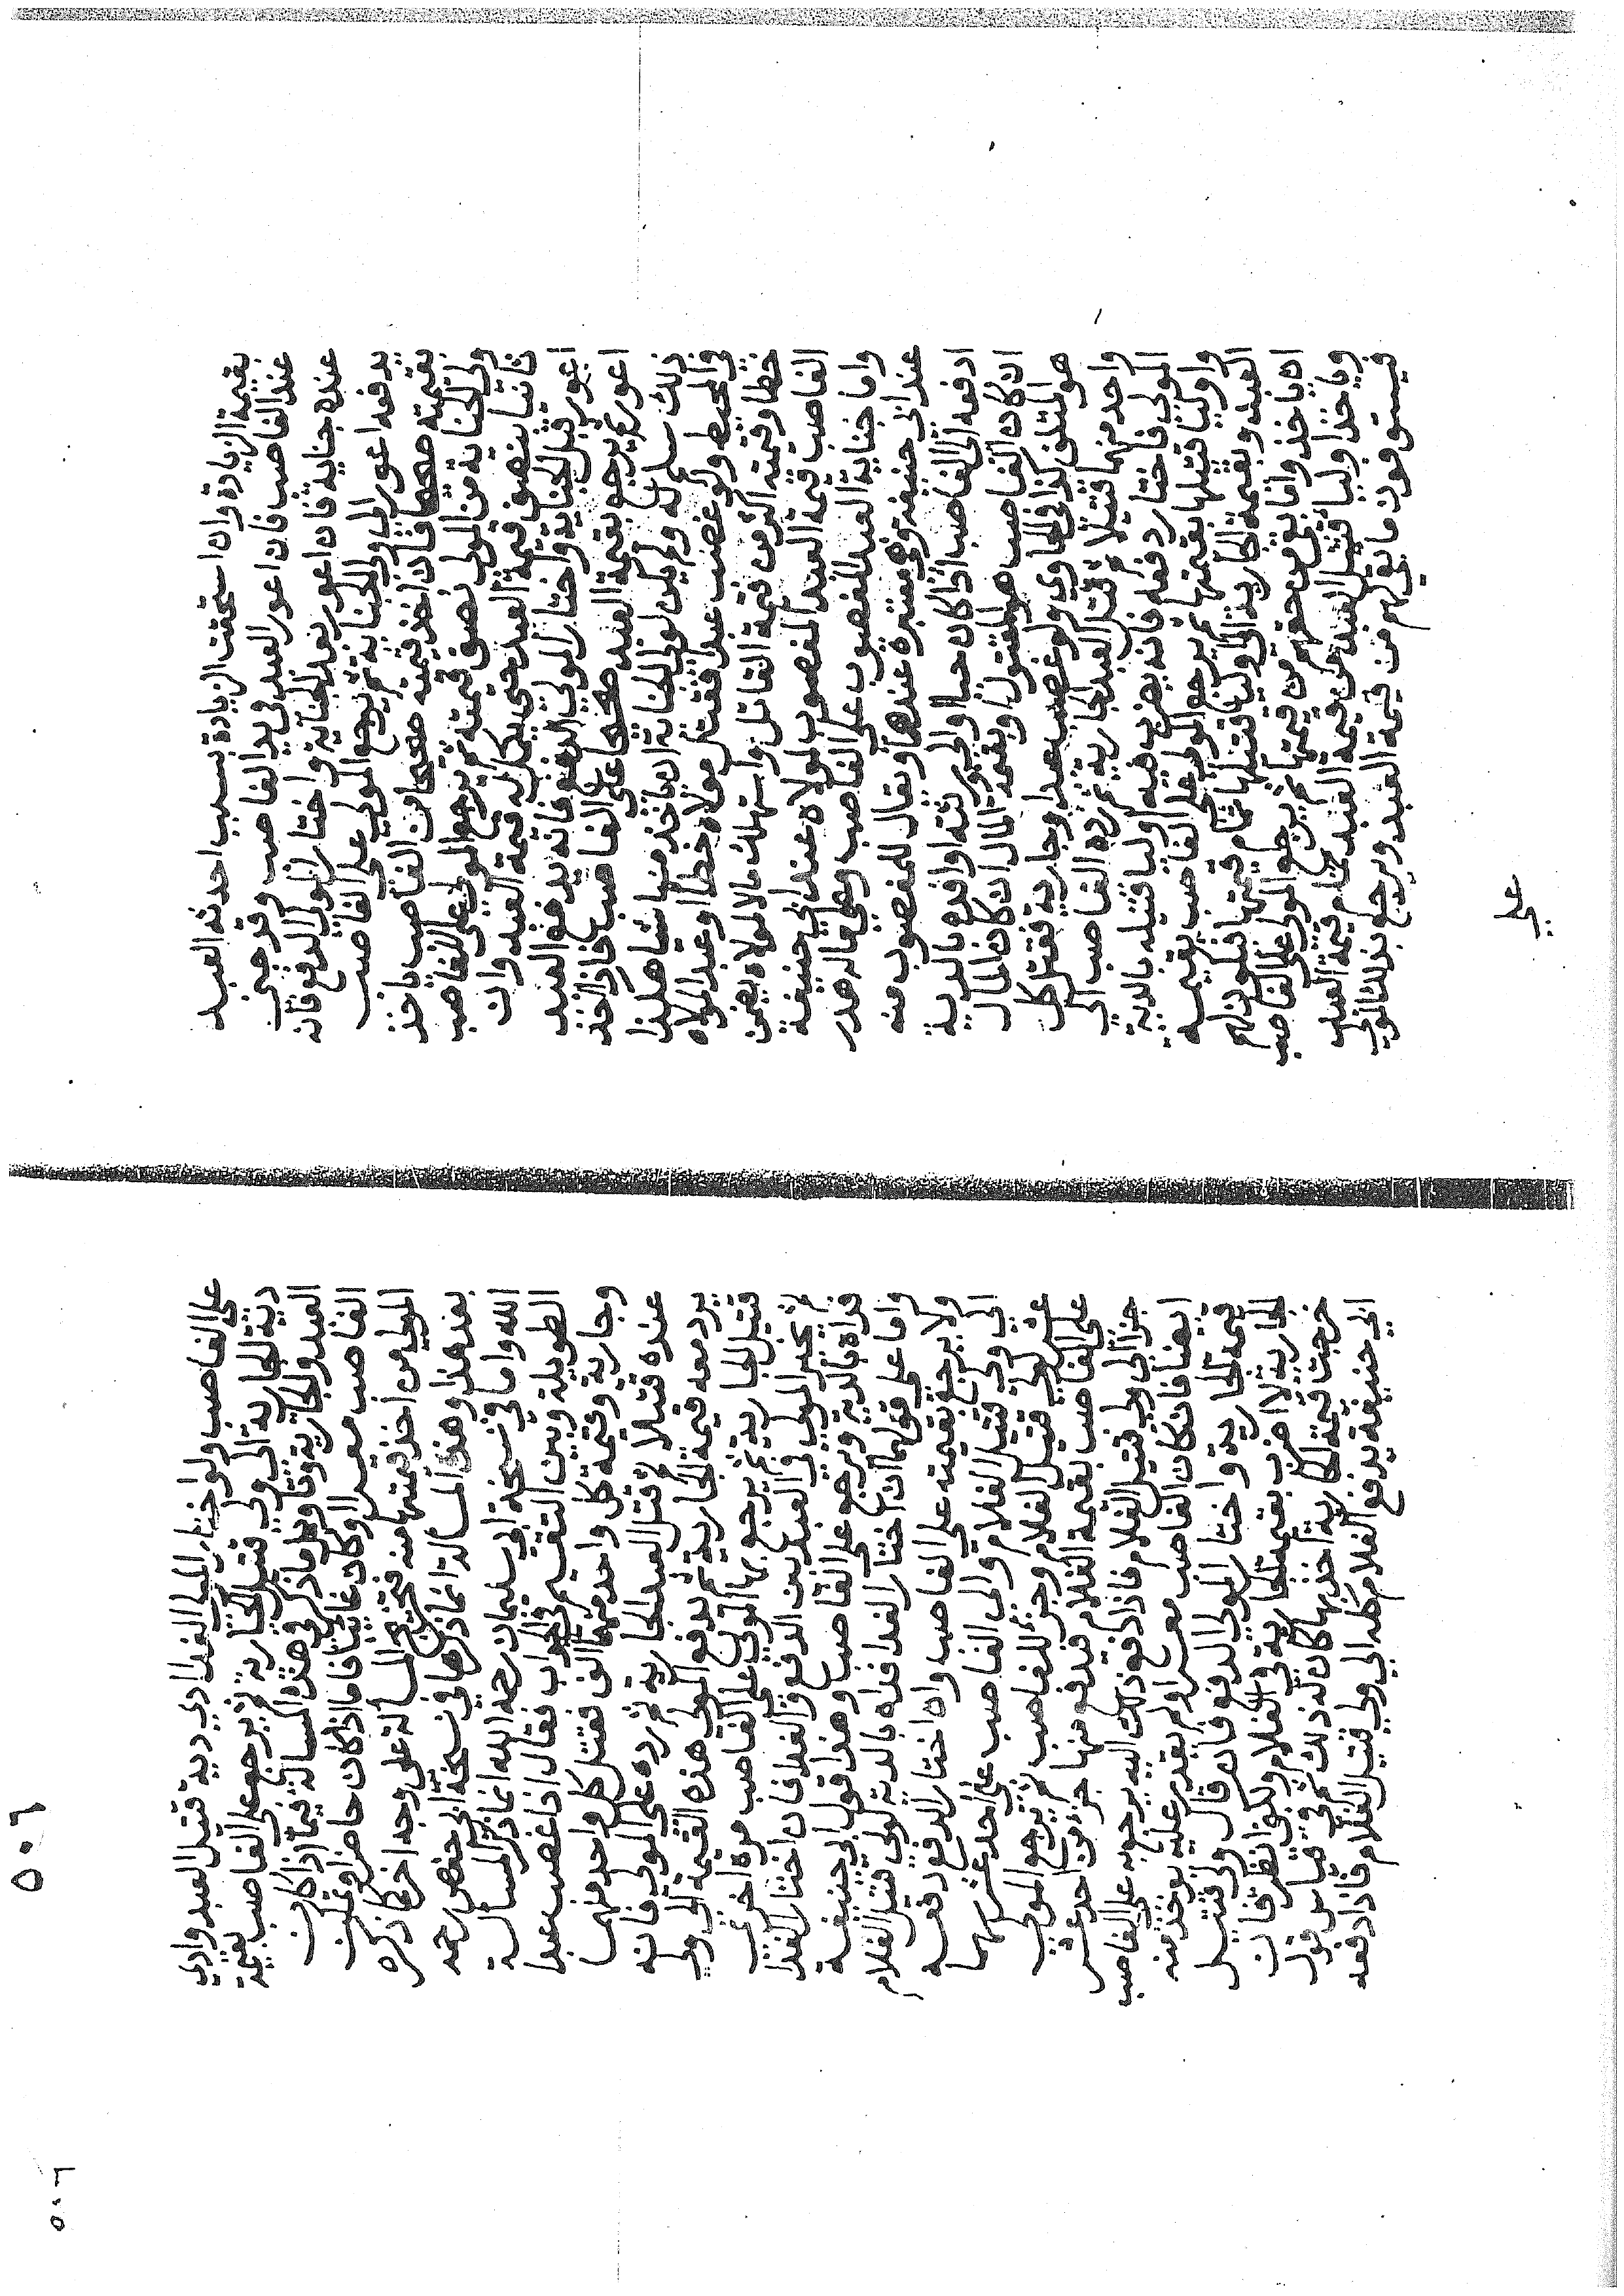 بقيمة الزيادة وان استحقت الزيادة بسبب احدثه العبد
عند الغاصب فان اعور العبد في يد الغاصب وقد جنى
عنده جناية فان اعور بعد الجناية واختار المولى الدفع فانه
يدفعه اعور الى ولي الجناية ثم يرجع المولى على الغاصب
بقيمته صحيحا فان اخذ قيمته صحيحا من الغاصب ياخذ
ولي الجناية من المولى نصف قيمته ثم يرجع المولى على الغاصب
ثانيا بنصف قيمة العبد حتى يتكامل له قيمة العبد وان
اعور قبل الجناية واختار المولى الدفع فانه يدفع العبد
اعور ثم يرجع بقيمة العبد صحيحا على الغاصب فاذا اخذ
ذلك سلم له ولم يكن لولي الجناية ان ياخذ منها شيا هكذا
في المحيط ولو غصب عبدا فقتل مولاه خطا او عبد المولاه
خطا وقيمته اكثر من قيمة القاتل او استهلك مالا لمولاه يضمن
الغاصب قيمة العبد المغصوب لمولاه عند ابي حنيفة
واما جناية العبد المغصوب على الغاصب وعلى ماله هدر
عند ابي حنيفة وهي معتبرة عندهما ويقال للمغصوب منه
ادفعه الى الغاصب اذا كان حيا والى ورثته او افده بالدية
ان كان الغاصب هو المقتول او بقيمة المال ان كان المال
هو المتلف كذا في الحاوي ولو غصب عبدا وجارية فقتل كل
واحد منهما قتيلا ثم قتل العبد الجارية ثم رده الغاصب الى
المولى فاختار دفعه فانه يضرب فيه اوليا قتيله بالدية
واوليا قتيلها بقيمتها ثم يرجع المولى على الغاصب بقيمة
العبد وبقيمة الجارية الى اوليا قتيلها تمام قيمتها فيكون لهم
ان ياخذوا ما بقي من حقهم من قيمتها ثم يرجع المولى على الغاصب
وياخذ اوليا قتيل العبد من قيمة العبد تمام قيمة العبد
فيستوفون ما بقي لهم من قيمة العبد ويرجع بذلك المولى
على
على الغاصب ولو اختار المولى الفدا ادى دية قتيل العبد وادى
دية الجارية الى ولي قتيل الجارية ثم يرجع على الغاصب بقيمة
العبد والجارية وتاويل ما ذكر في هذه المسالة فيما اذا كان
الغاصب معسرا او كان غايبا فاما اذا كان حاضرا وتمكن
المولى من اخذ قيمتها منه فتخريج المسالة على وجه اخر كما ذكره
بعد هذا وهذه المسالة انما ذكرها في نسخة ابي حفص رحمه
الله واما في نسخة ابي سليمان رحمه الله انما ذكر المسالة
الطويلة وبين التقسيم في الجواب فقال اذا غصب عبدا
وجارية وقيمة كل واحد منهما الف فقتل كل واحد منهما
عنده قتيلا ثم قتل العبد الجارية ثم رده على المولى فانه
يرد معه قيمة الجارية ثم يدفع المولى هذه القيمة الى ولي
قتيل الجارية ثم يرجع بها المولى على الغاصب مرة اخرى
ثم يخير المولى في العبد بين الدفع والفدا فان اختار الفدا
فداه بالدية ويرجع على الغاصب وهذا قول ابي حنيفة
واما على قولهما ان اختار الفدا فداه بالدية لولي قتيل الغلام
ولا يرجع بقيمته على الغاصب وان اختار الدفع دفعه
الى ولي قتيل الغلام والى الغاصب على احد عشر سهما
عشرة لولي قتيل الغلام وجزء للغاصب ثم يرجع المولى
على الغاصب بقيمة الغلام فيدفع منها جزء من احد عشر
جزا الى ولي قتيل الغلام فاذا دفع ذلك اليه يرجع به على الغاصب
ايضا فان كان الغاصب معسرا ولم يقدر عليه يوخذ منه
قيمة الجارية واختار المولى الدفع فان قال ولي قتيل
الجارية لا اضرب بقيمة الجارية في الغلام ولكن انظر فان
خرجت قيمة الجارية اخذتها كان له ذلك ثم في قياس قول
ابي حنيفة يدفع الغلام كله الى ولي قتيل الغلام فاذا دفعه
٥٠٦
٥٠٦